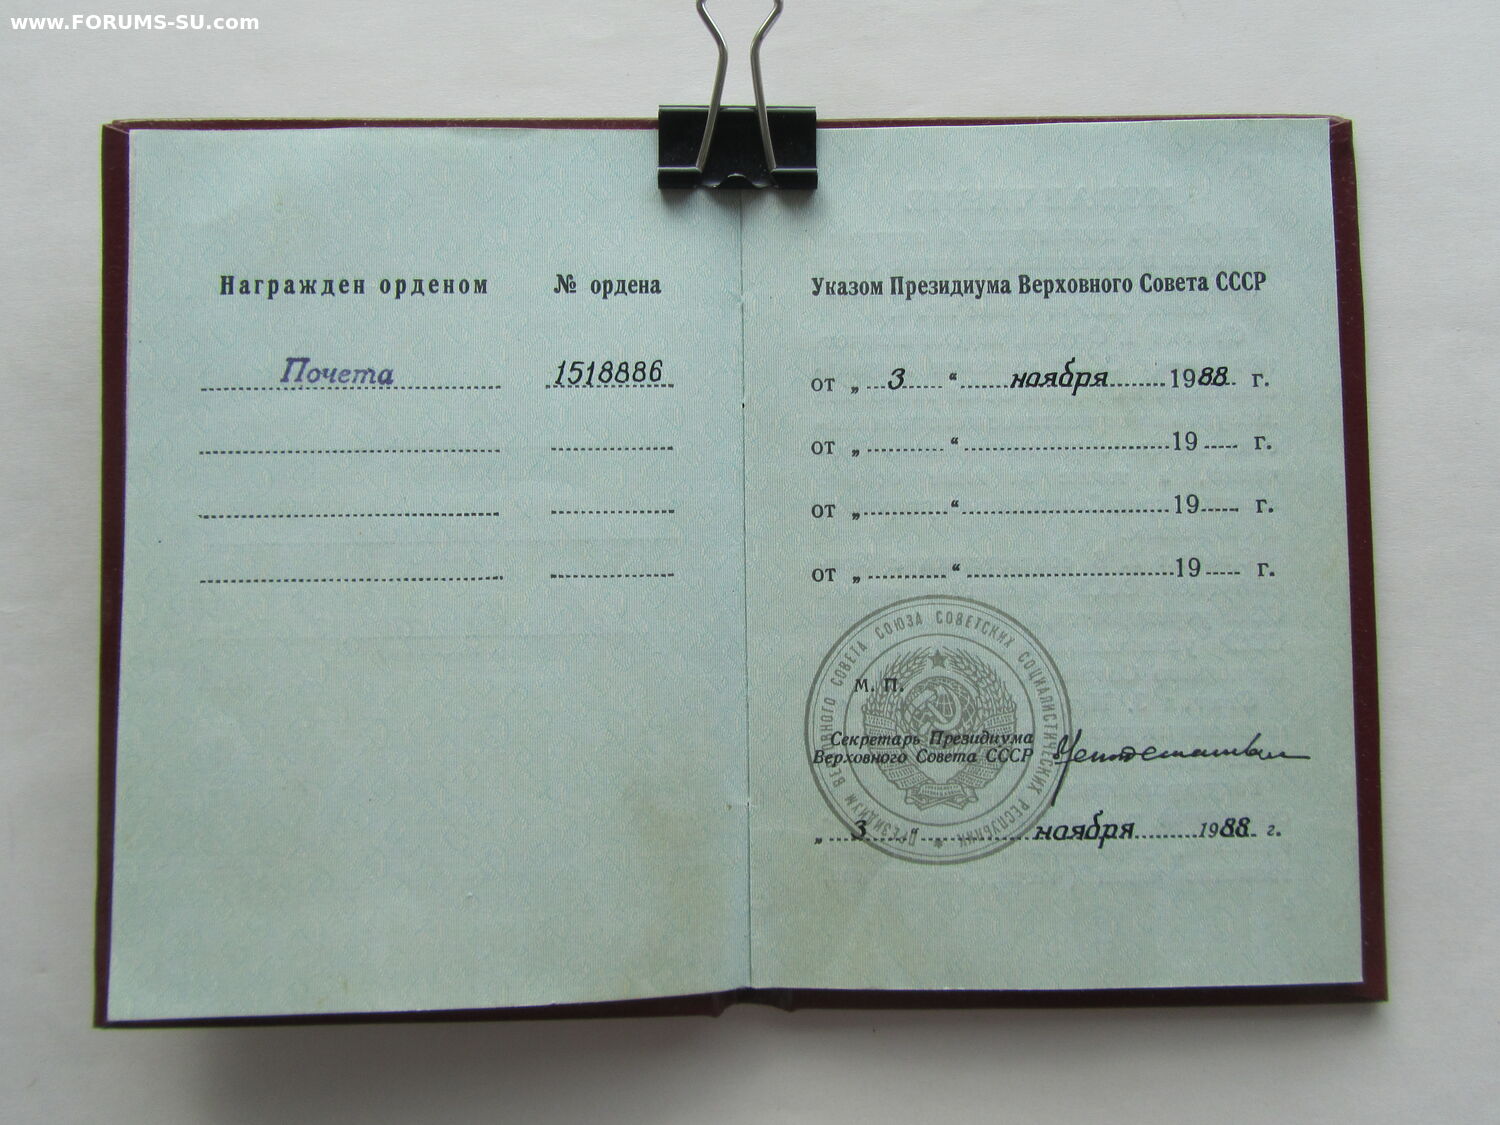 www.FORUMS-SU.com
Награжден орденом № ордена
Почета 1518886
Указом Президиума Верховного Совета СССР
от „ 3 “ ноября 1988 г.
от „ “ 19 г.
от „ “ 19 г.
от „ “ 19 г.
ПРЕЗИДИУМ ВЕРХОВНОГО СОВЕТА СОЮЗА СОВЕТСКИХ СОЦИАЛИСТИЧЕСКИХ РЕСПУБЛИК
М. П.
Секретарь Президиума
Верховного Совета СССР
„ 3 “ ноября 1988 г.